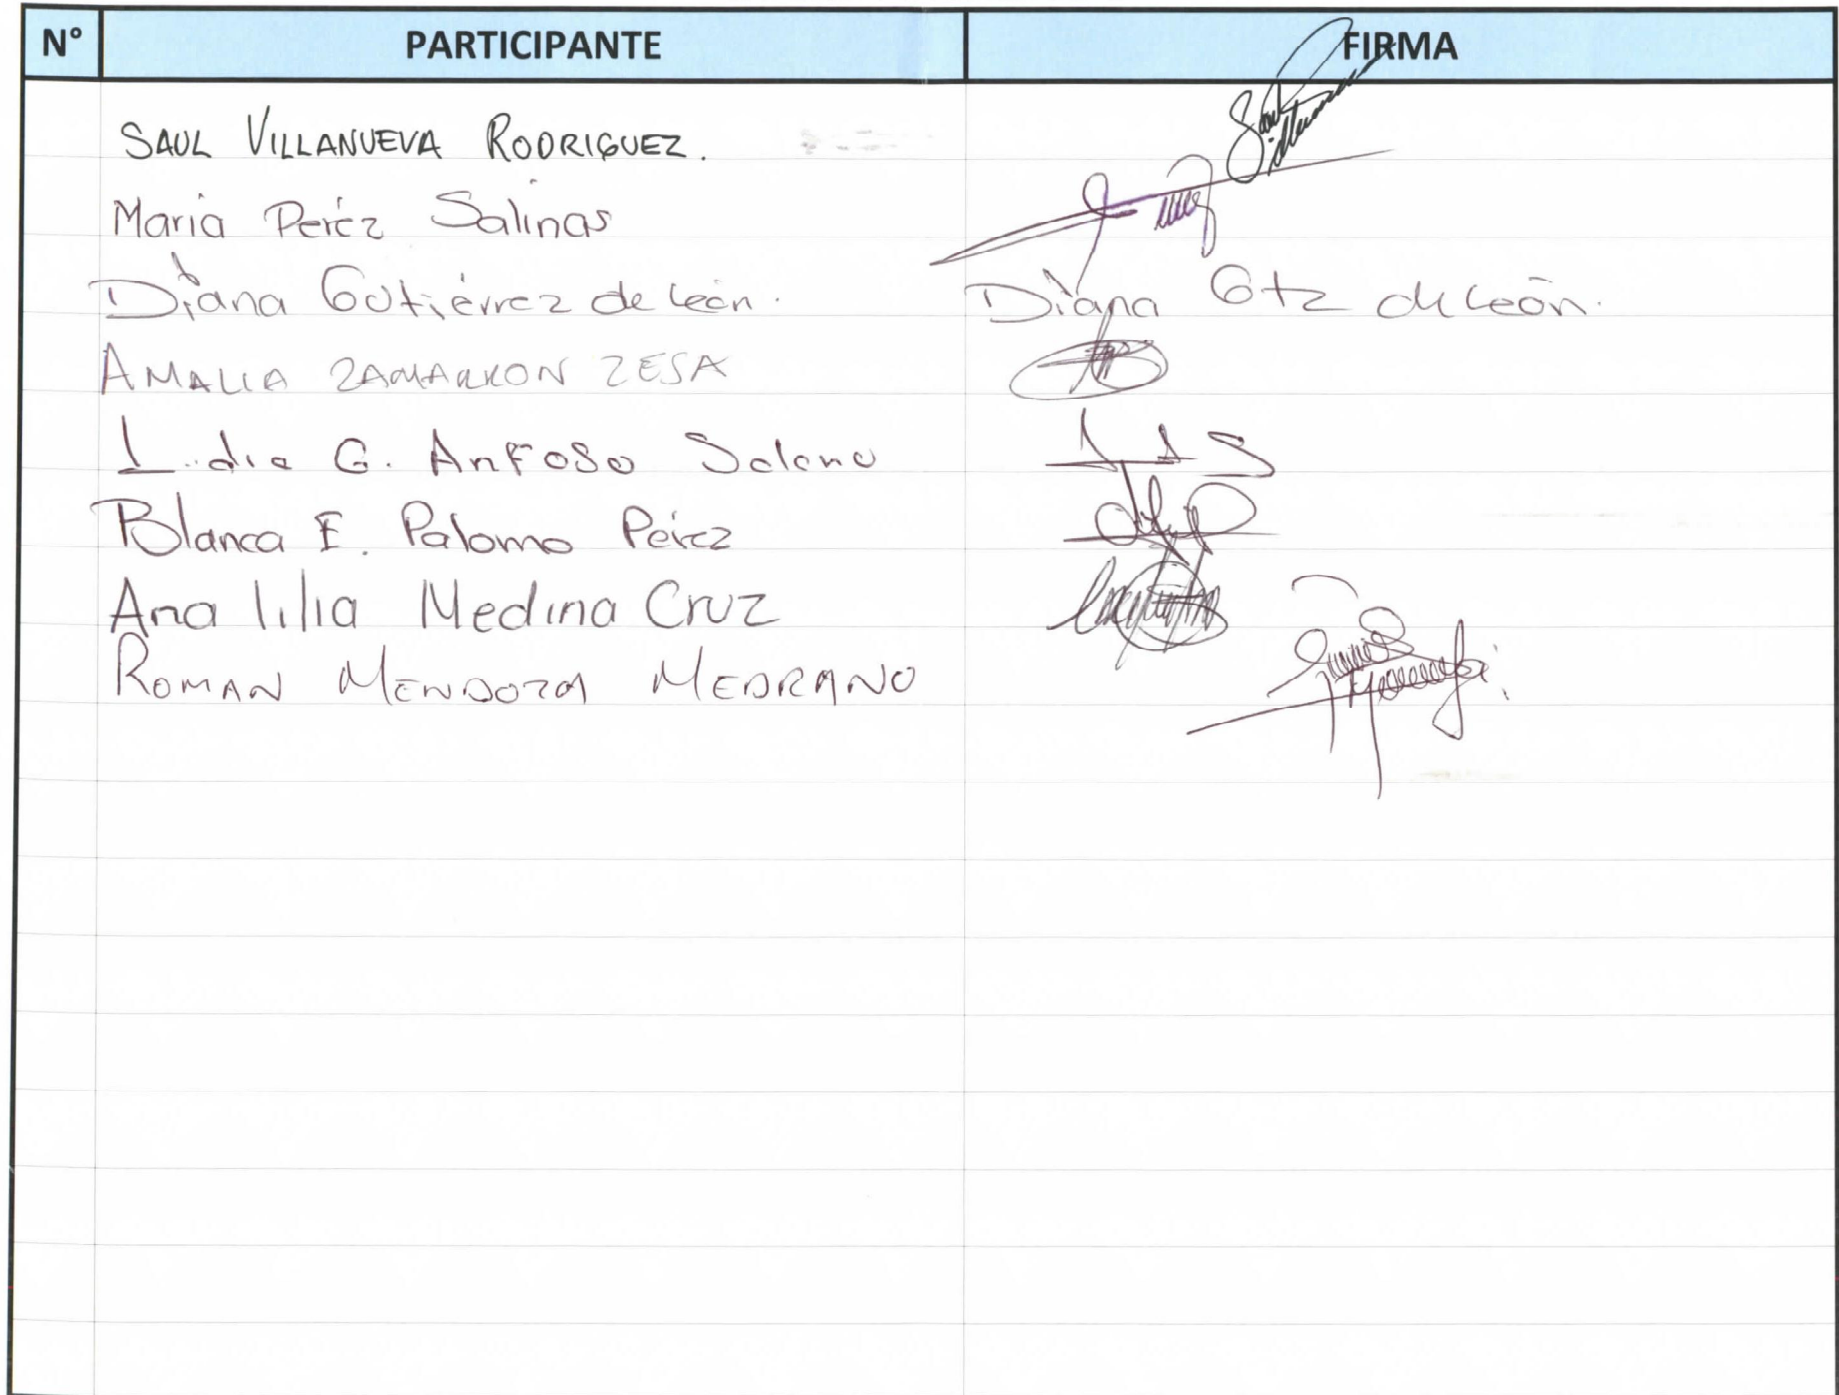 N° PARTICIPANTE FIRMA
SAUL VILLANUEVA RODRIGUEZ.
Maria Peréz Salinas
Diana Gutiérrez de león. Diana Gtz de león.
AMALIA ZAMARRON ZESA
Lidia G. Anfoso Solano
Blanca E. Palomo Peréz
Ana lilia Medina Cruz
ROMAN MENDOZA MEDRANO